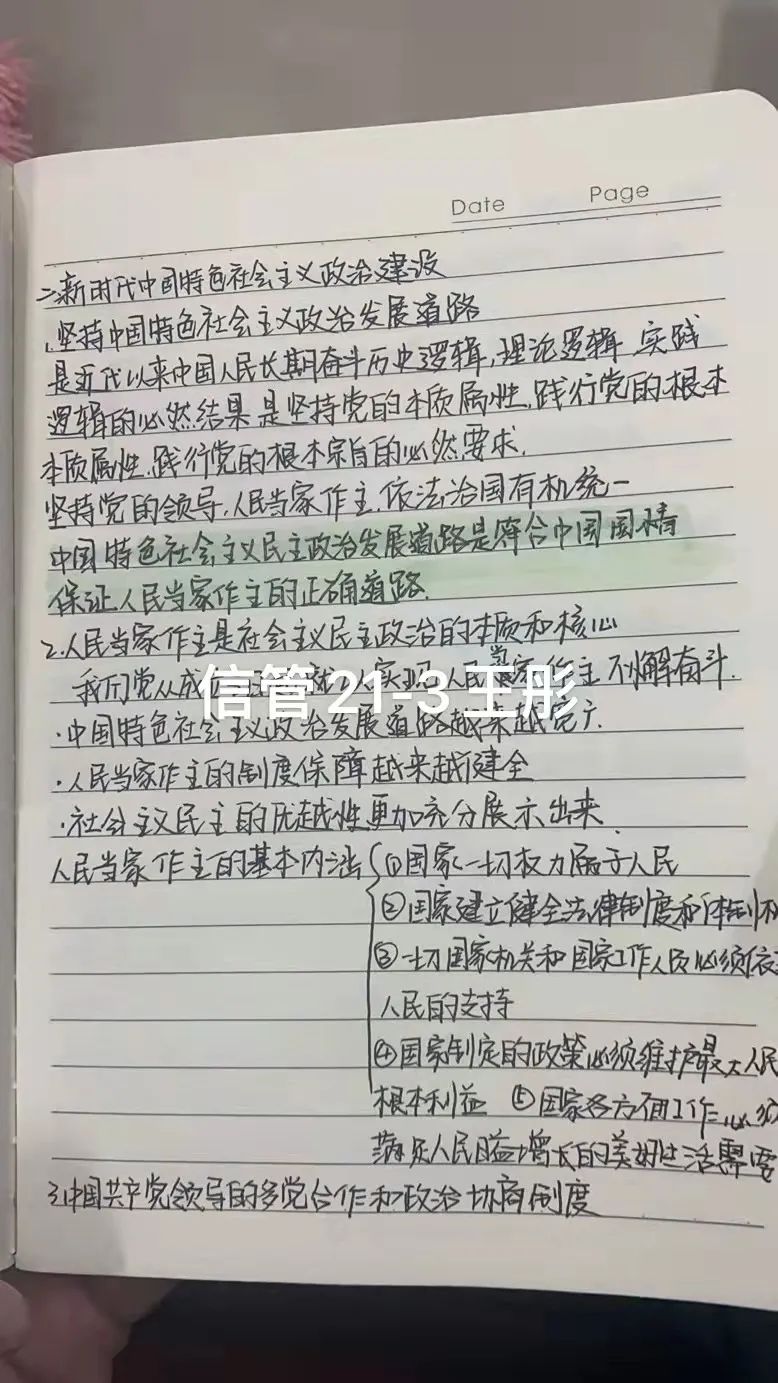 Date Page
二、新时代中国特色社会主义政治建设
1.坚持中国特色社会主义政治发展道路
是近代以来中国人民长期奋斗历史逻辑,理论逻辑 实践
逻辑的必然结果 是坚持党的本质属性、践行党的根本
本质属性、践行党的根本宗旨的必然要求.
坚持党的领导、人民当家作主、依法治国有机统一
中国特色社会主义民主政治发展道路是符合中国国情
保证人民当家作主的正确道路.
2.人民当家作主是社会主义民主政治的本质和核心
我们党从成 实现人民当家作主 不懈奋斗.
信管21-3 王彤
·中国特色社会主义政治发展道路越来越宽广.
·人民当家作主的制度保障越来越健全
·社会主义民主的优越性更加充分展示出来.
人民当家作主的基本内涵 ①国家一切权力属于人民
②国家建立健全法律制度和体制
③一切国家机关和国家工作人员必须依
人民的支持
④国家制定的政策必须维护最大人民
根本利益 ⑤国家各方面工作必须
满足人民日益增长的美好生活需要
3.中国共产党领导的多党合作和政治协商制度